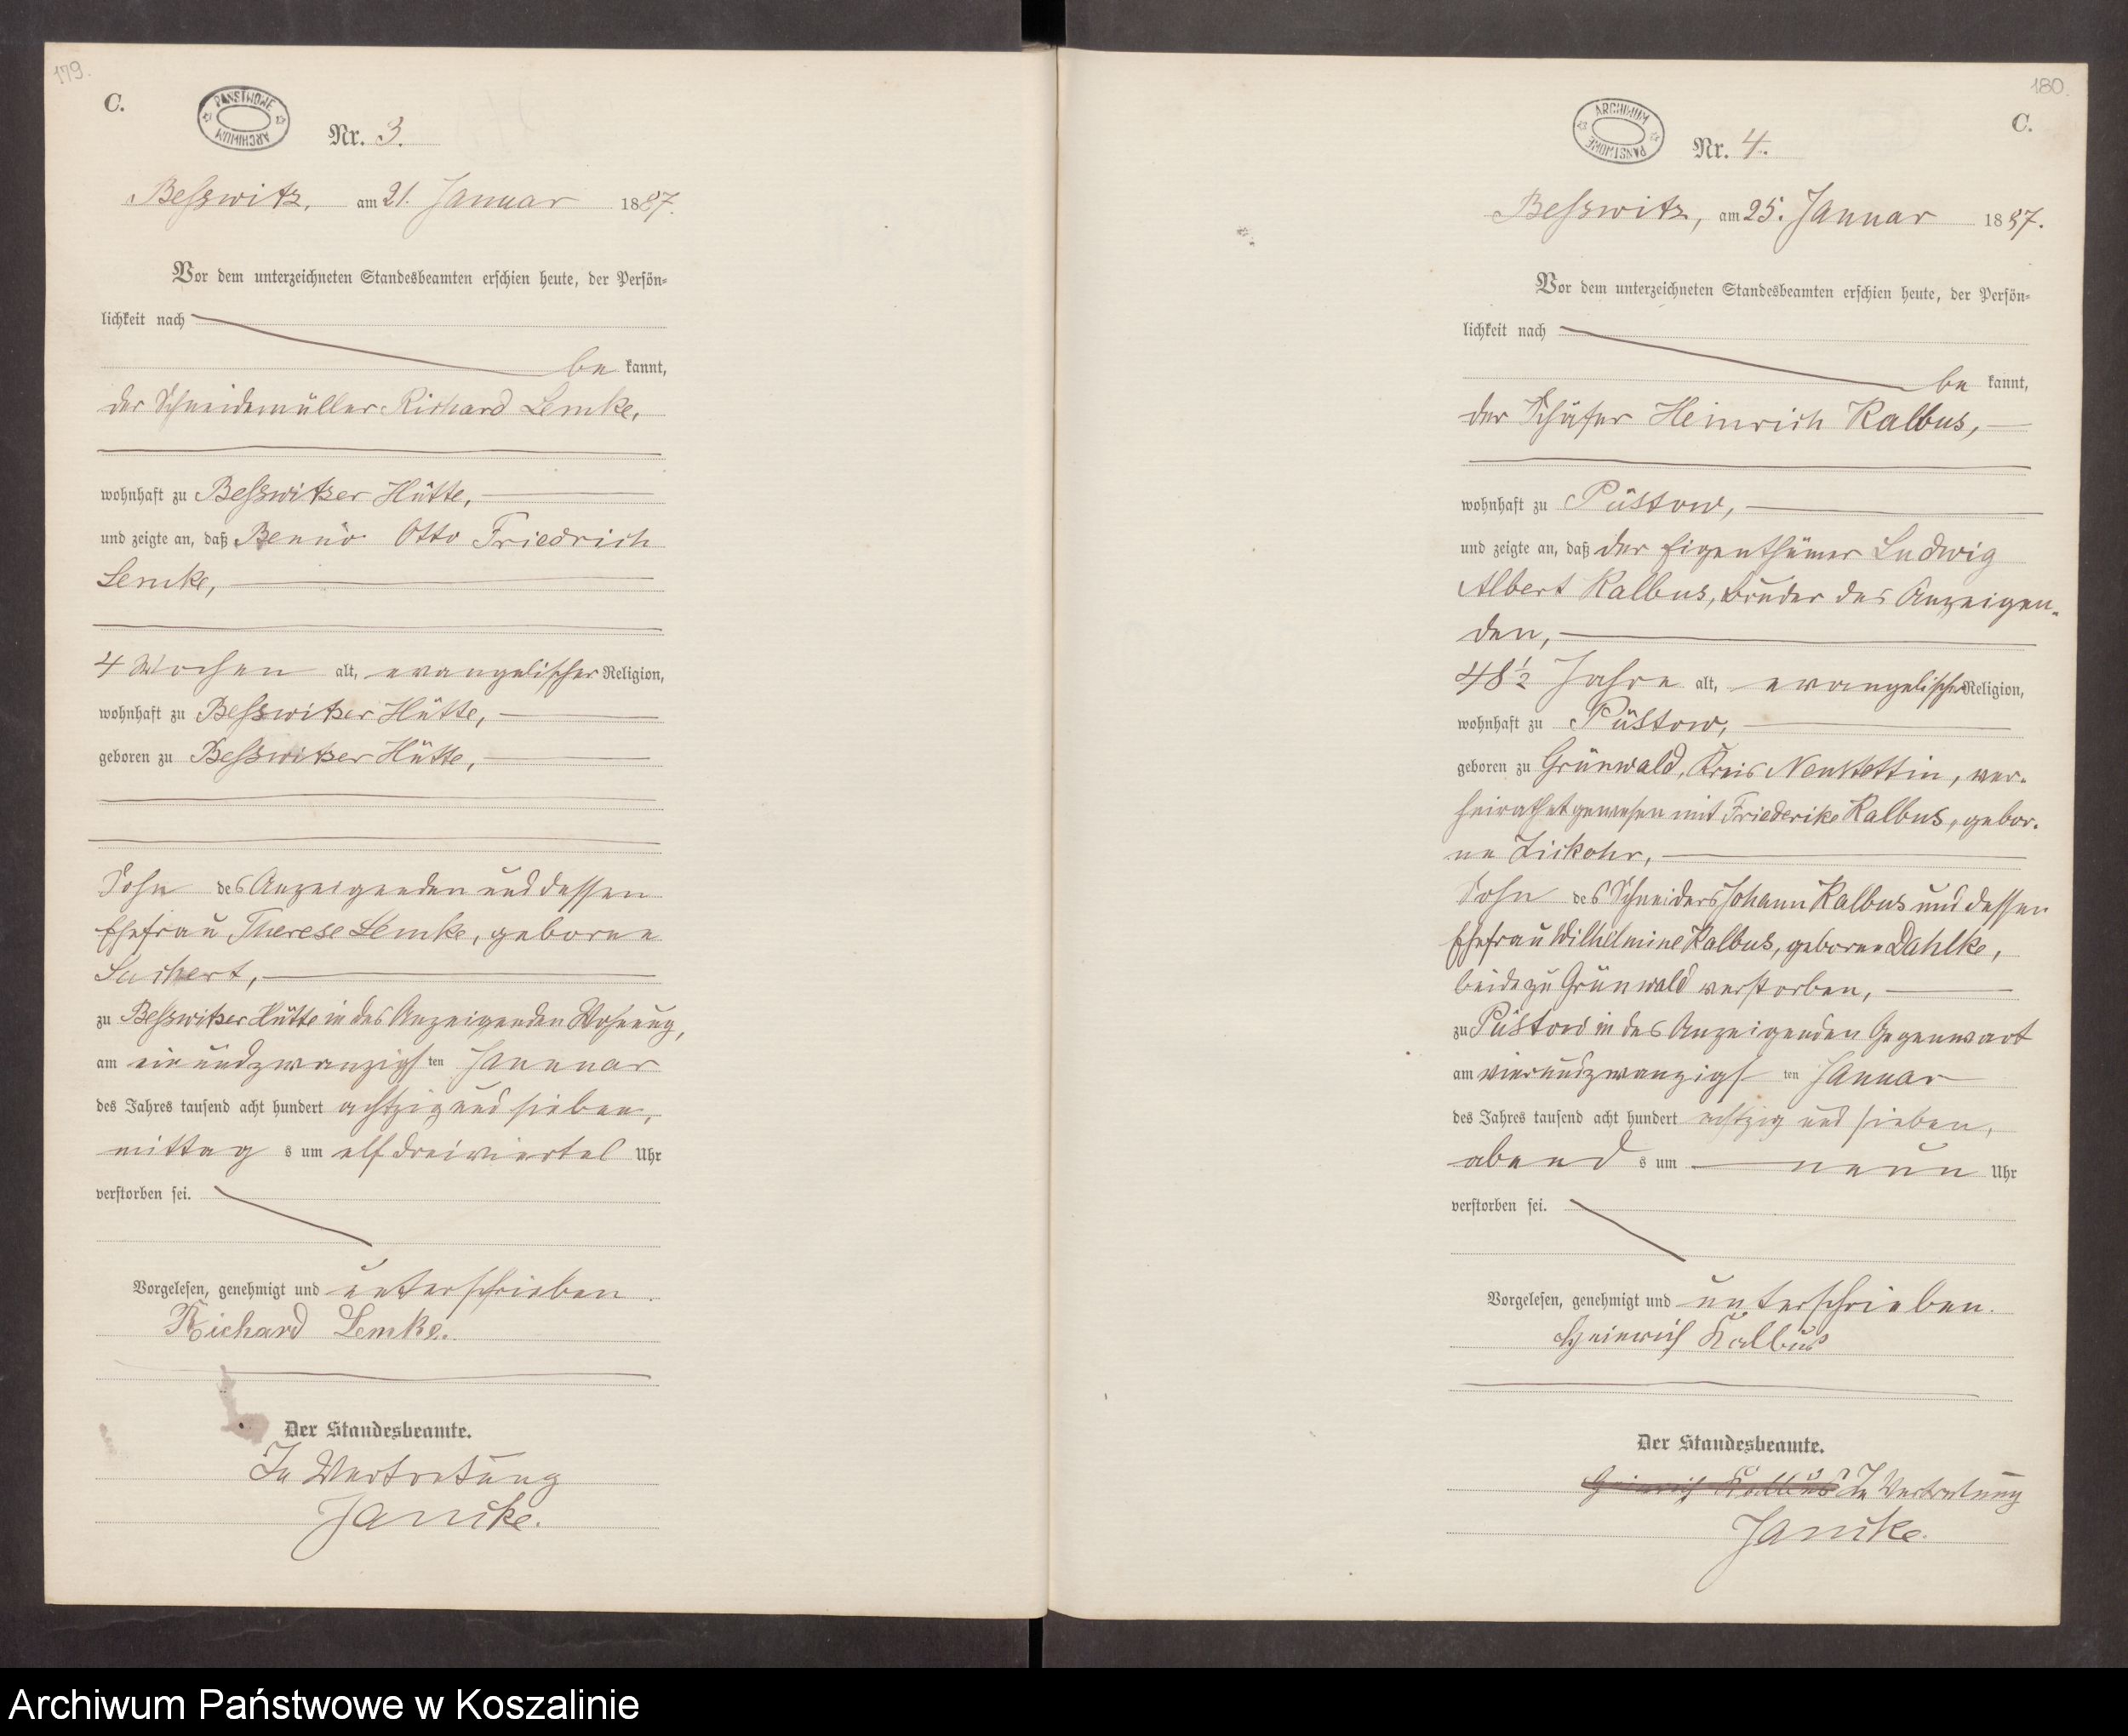 179.
C.
PAŃSTWOWE ARCHIWUM
Nr. 3.
Beßwitz, am 21. Januar 1887.
Vor dem unterzeichneten Standesbeamten erschien heute, der Persön=
lichkeit nach
be kannt,
der Schneidemüller Richard Lemke,
wohnhaft zu Beßwitzer Hütte,
und zeigte an, daß Benno Otto Friedrich
Lemke,
4 Wochen alt, evangelischer Religion,
wohnhaft zu Beßwitzer Hütte,
geboren zu Beßwitzer Hütte,
Sohn des Anzeigenden und dessen
Ehefrau Therese Lemke, geborene
zu Beßwitzer Hütte in des Anzeigenden Wohnung,
am einundzwanzigsten Januar
des Jahres tausend acht hundert achtzig und sieben,
mittags um elf dreiviertel Uhr
verstorben sei.
Vorgelesen, genehmigt und unterschrieben.
Richard Lemke.
Der Standesbeamte.
In Vertretung
Janicke.
180.
C.
ARCHIWUM PAŃSTWOWE
Nr. 4.
Beßwitz, am 25. Januar 1887.
Vor dem unterzeichneten Standesbeamten erschien heute, der Persön=
lichkeit nach
be kannt,
der Schäfer Heinrich Kalbus,
wohnhaft zu Püstow,
und zeigte an, daß der Eigenthümer Ludwig
Albert Kalbus, Bruder des Anzeigen-
den,
48 1/2 Jahre alt, evangelischer Religion,
wohnhaft zu Püstow,
geboren zu Grünwald, Kreis Neustettin, ver-
heirathet gewesen mit Friederike Kalbus, gebor-
ne
Sohn des Schneiders Johann Kalbus und dessen
Ehefrau Wilhelmine Kalbus, geborne Dahlke,
beide zu Grünwald verstorben,
zu Püstow in des Anzeigenden Gegenwart
am vierundzwanzigsten Januar
des Jahres tausend acht hundert achtzig und sieben,
abends um neun Uhr
verstorben sei.
Vorgelesen, genehmigt und unterschrieben.
Heinrich Kalbus
Der Standesbeamte.
Heinrich Kalbus In Vertretung
Janicke.
Archiwum Państwowe w Koszalinie